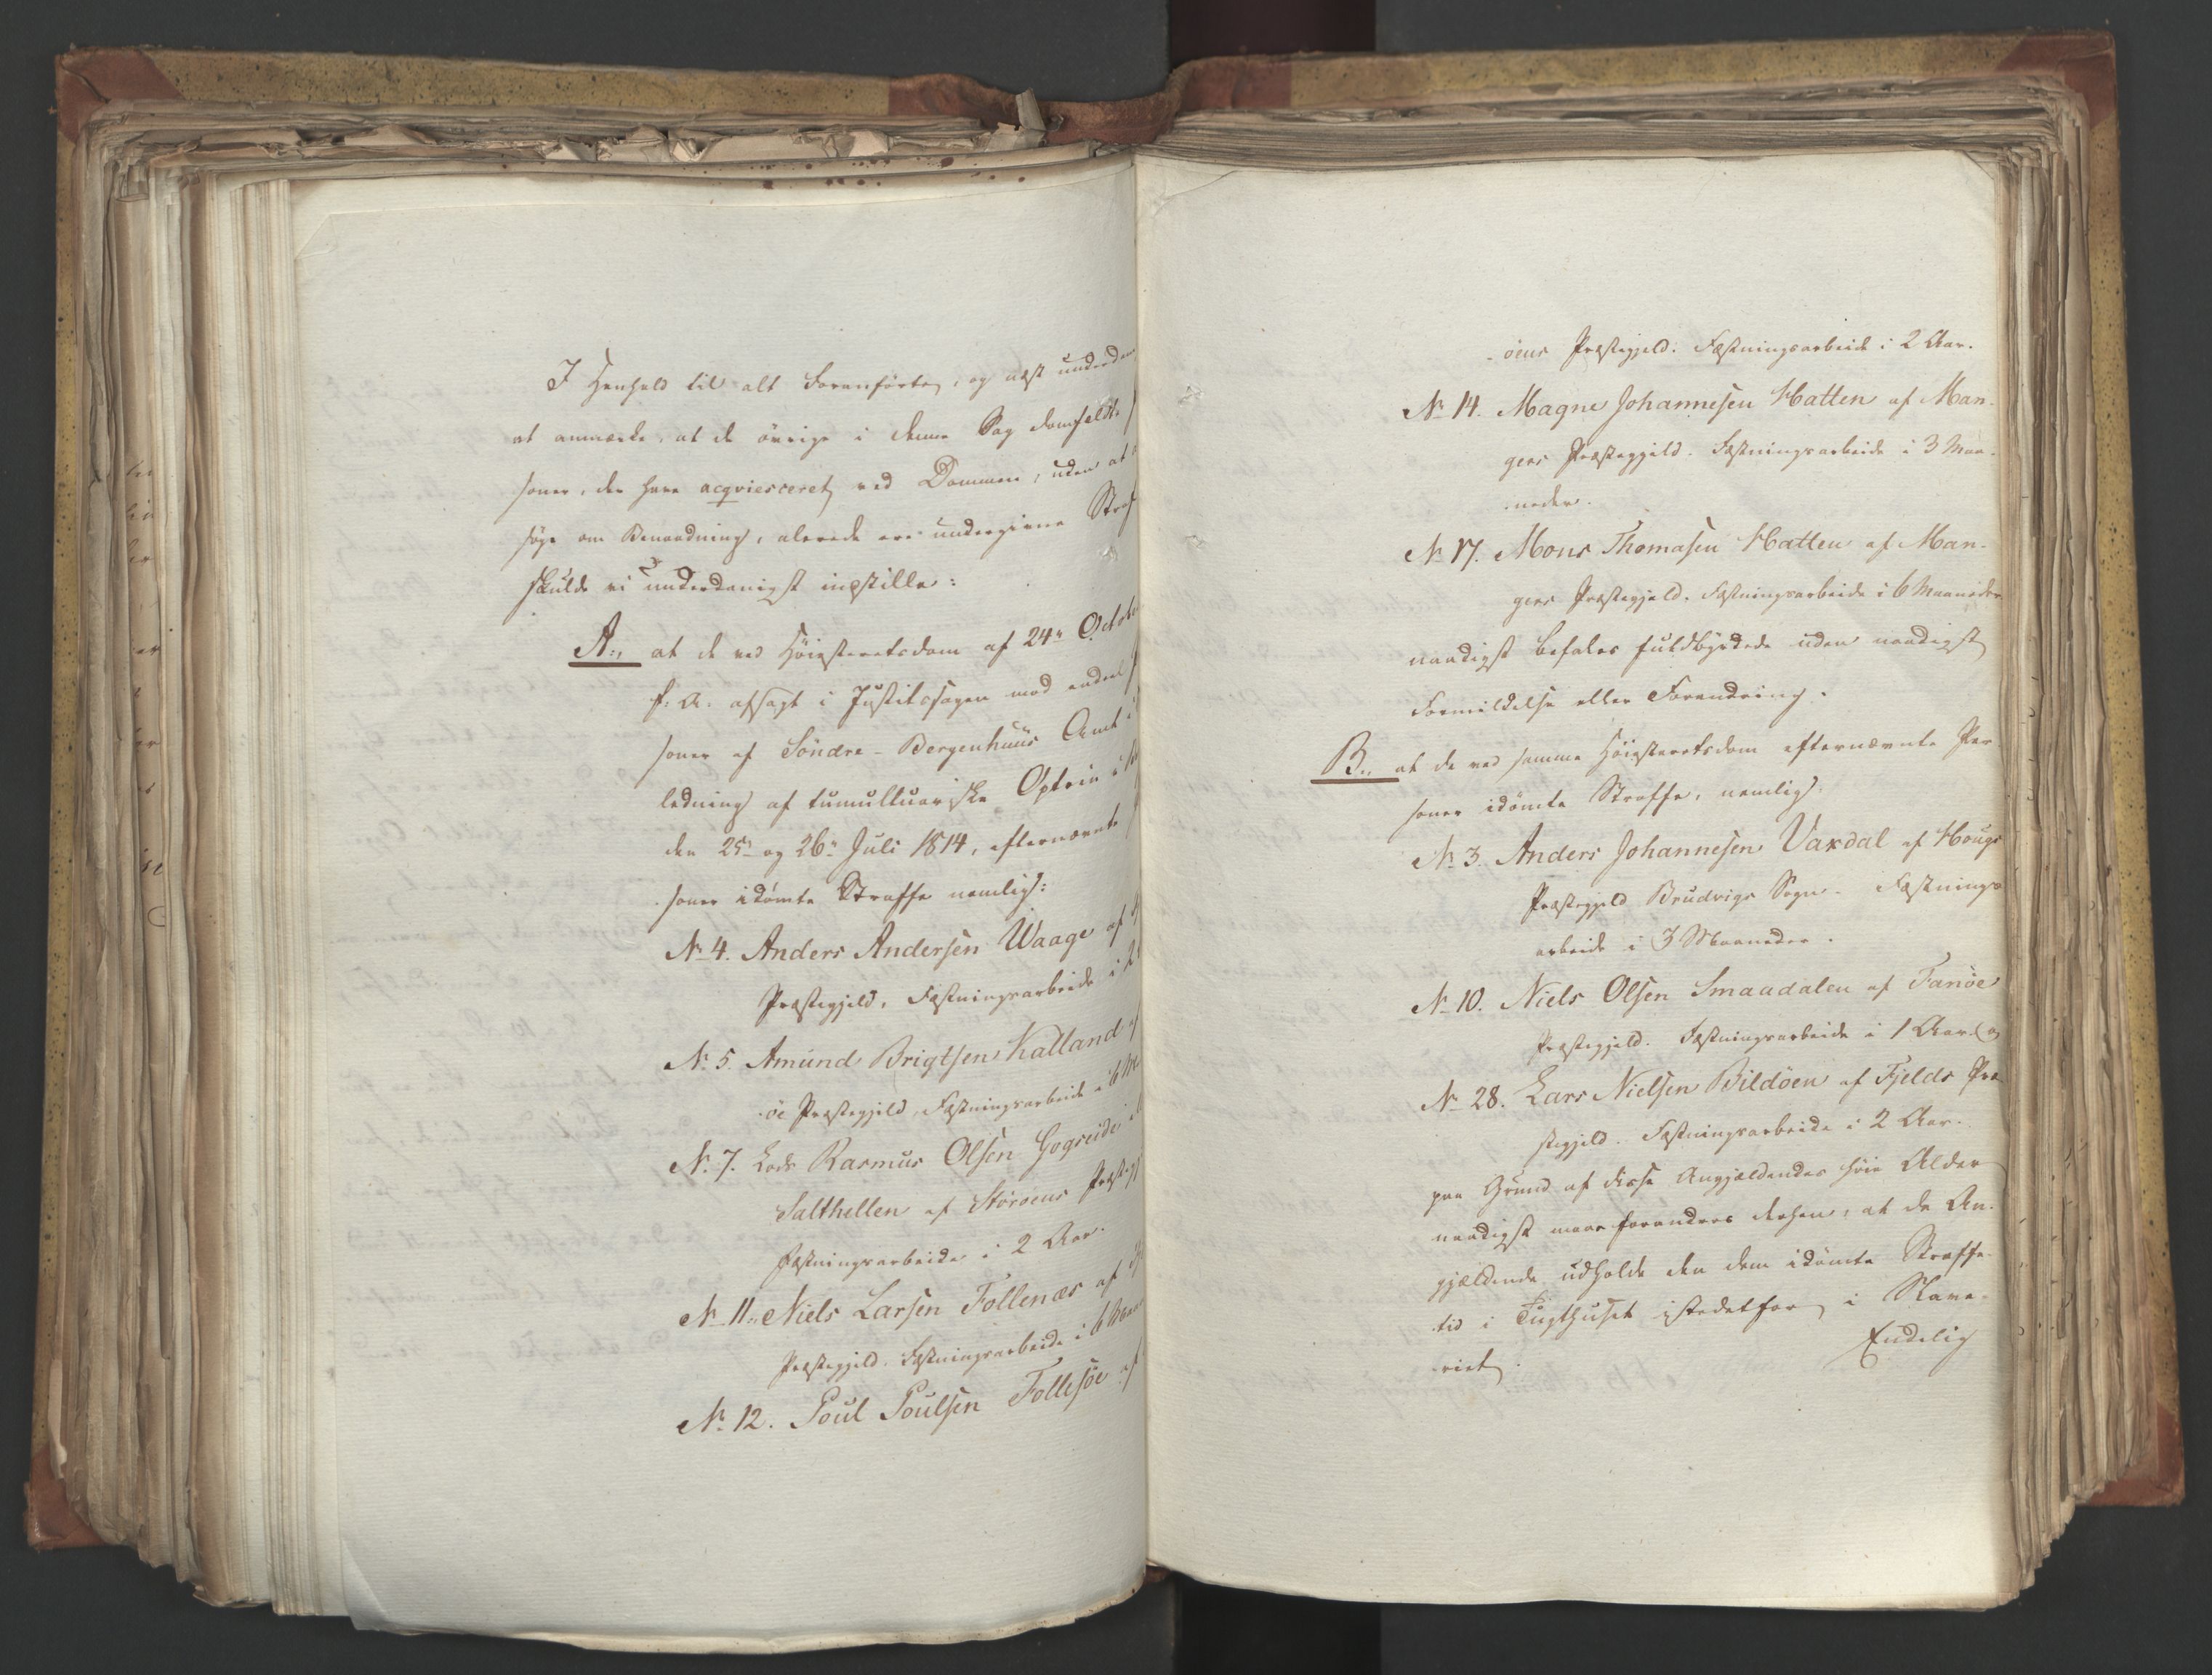 I Henhold til alt Foranførte, og næst underdan
at anmærke, at de øvrige i denne Sag domfældte
soner, der have acqviesceret ved Dommen, uden at
søge om Benaadning, alerede ere undergivne Straf
skulde vi underdanigst indstille:
A., at de ved Høiesteretsdom af 24de Octob
f. A. afsagt i Justitssagen mod endeel
soner af Söndre-Bergenhuus Amt i
ledning af tumultuariske Optrin i
den 25de og 26de Juli 1814, efternævnte
soner idømte Straffe nemlig:
No 4. Anders Andersen Waage af
Præstegjeld, Fæstningsarbeide i 2
No 5. Amund Brigtsen Kalland af
öe Præstegjeld, Fæstningsarbeide i 6 M
No 7. Lods Rasmus Olsen Gogreide i
Salthellen af Störöens Præstegj
Fæstningsarbeide i 2 Aar.
No 11. Niels Larsen Follenæs af
Præstegjeld. Fæstningsarbeide i 6 Maan
No 12. Poul Poulsen Follesöe af
öens Præstegjeld. Fæstningsarbeide i 2 Aar.
No 14. Magne Johannesen Hatten af Man-
gers Præstegjeld. Fæstningsarbeide i 3 Maa-
neder.
No 17. Mons Thomasen Hatten af Man-
gers Præstegjeld. Fæstningsarbeide i 6 Maaneder
naadigst befales fuldbyrdede uden naadigst
Formildelse eller Forandring.
B., at de ved samme Høiesteretsdom efternævnte Per-
soner idømte Straffe, nemlig:
No 3. Anders Johannesen Vaxdal af Hougs
Præstegjeld Brudvigs Sogn. Fæstnings-
arbeide i 3 Maaneder.
No 10. Niels Olsen Smaadalen af Fanöe
Præstegjeld. Fæstningsarbeide i 1 Aar. og
No 28. Lars Nielsen Bildöen af Fjelds Præ-
stegjeld. Fæstningsarbeide i 2 Aar.
paa Grund af disse Angjældendes høie Alder
naadigst maae forandres derhen, at de An-
gjældende udholde den dem idømte Straffe-
tid i Tugthuset istedetfor i Slave-
riet.
Endelig